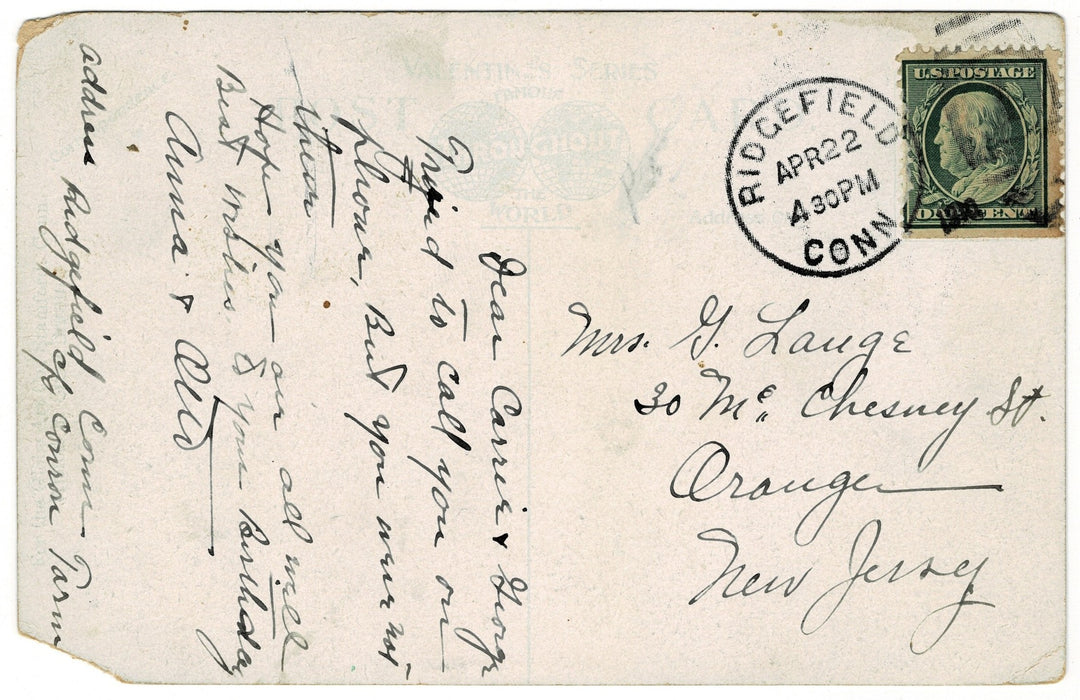 VALENTINE'S SERIES
FAMOUS
POST CARD
THROUGHOUT
THE
WORLD
RIDGEFIELD
APR 22
4 30 PM
CONN.
1910
U.S. POSTAGE
ONE CENT
Dear Carrie & George
Tried to call you on
phone, But you were not
there
Hope you are all well
Best Wishes to your Birthday
Anna & Otto
address Ridgefield Conn
c/o Conron Farm
Mrs. G. Lange
30 Mc Chesney St.
Orange
New Jersey